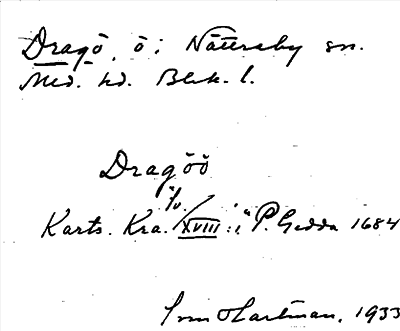 Dragö, ö i Nättraby sn.
Med. hd. Blek. l.
Dragöö
Karts. Kra. XVIII : P. Gedda 1684
Hartman, 1933